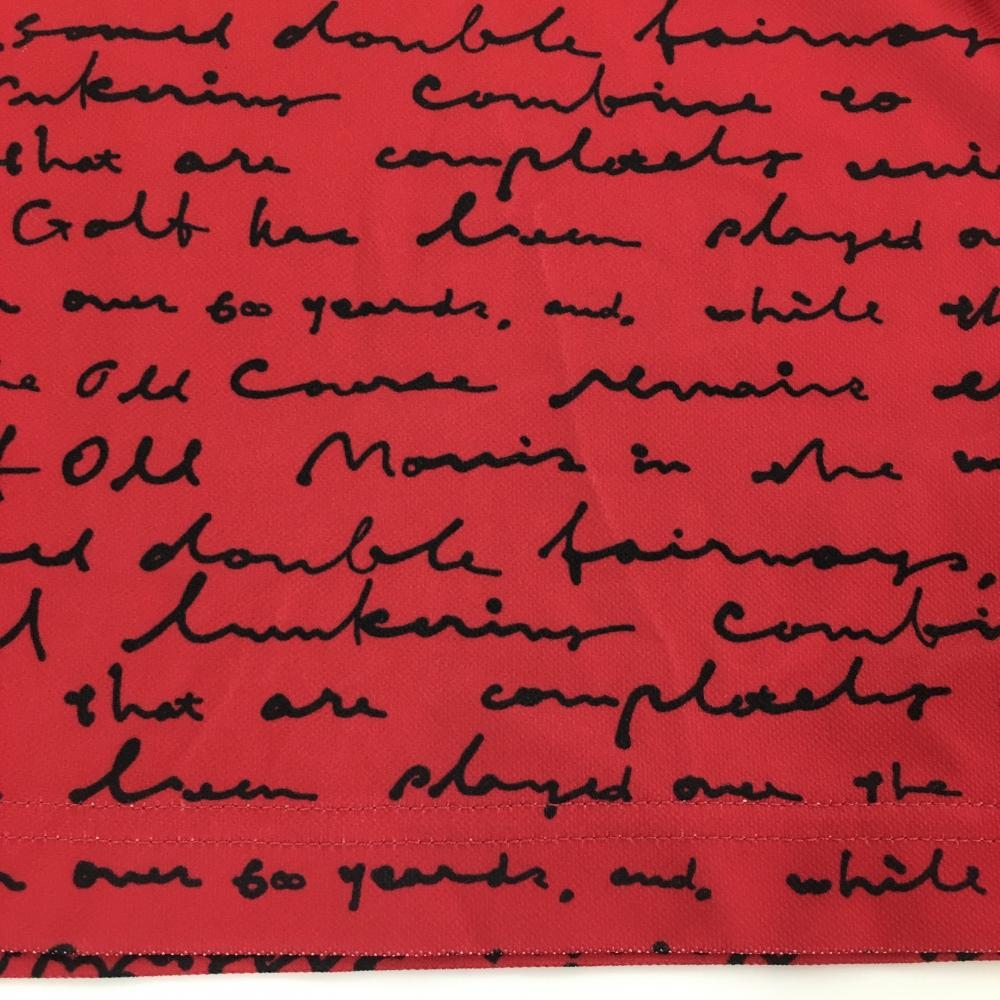 double fairways
combine to
that are completely
Golf has been played
over 600 years, and, while
Old Course remains
Old Morris in the
double fairways,
bunkering
that are completely
been played over the
over 600 years, and, while